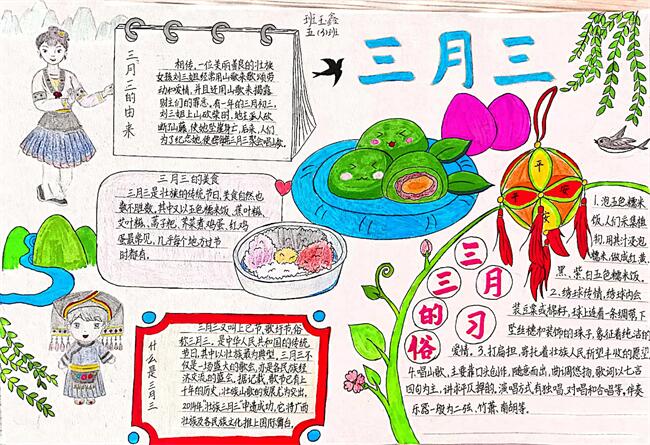 班玉鑫
五(3)班
三月三
三月三的由来
相传,一位美丽善良的壮族
女孩刘三姐经常用山歌来歌颂劳
动和爱情,并且还用山歌来揭露
财主们的罪恶,有一年的三月初三,
刘三姐上山砍柴时,地主派人砍
断山藤,使她坠崖身亡,后来,人们
为了纪念她,便在三月三聚会唱歌。
三月三的美食
三月三是壮族的传统节日,美食自然也
数不胜数,其中又以五色糯米饭、蕉叶糍、
艾叶糍、荠菜煮鸡蛋、红鸡
蛋最常见,几乎每个地方过节
时都有。
什么是三月三
三月三又叫上巳节、歌圩节,俗
称三月三,是中华人民共和国的传统
节日,其中以壮族最为典型,三月三不
仅是一场盛大的歌会,亦是各民族经
济交流的盛会。据记载,歌节已有上
千年的历史,壮族三月三
2014年,壮族三月三申遗成功,它将广西
壮族及各民族文化推上国际舞台。
平
安
安
三月三的习俗
1.泡五色糯米
饭,人们采集植
物,用其汁浸泡
糯米,做成红、黄、
黑、紫、白五色糯米饭。
2.绣球传情,绣球内会
装豆粟或棉籽,球上连着一条绸带,下
坠丝穗和装饰的珠子,象征着纯洁的
爱情。3.打扁担,寄托着壮族人民祈望丰收的愿望
4.唱山歌,主要靠口头创作,随意而出,曲调悠扬,歌词以七言
四句为主,讲求平仄押韵。演唱方式有独唱、对唱和合唱等,伴奏
乐器一般为二弦、竹箫、南胡等。